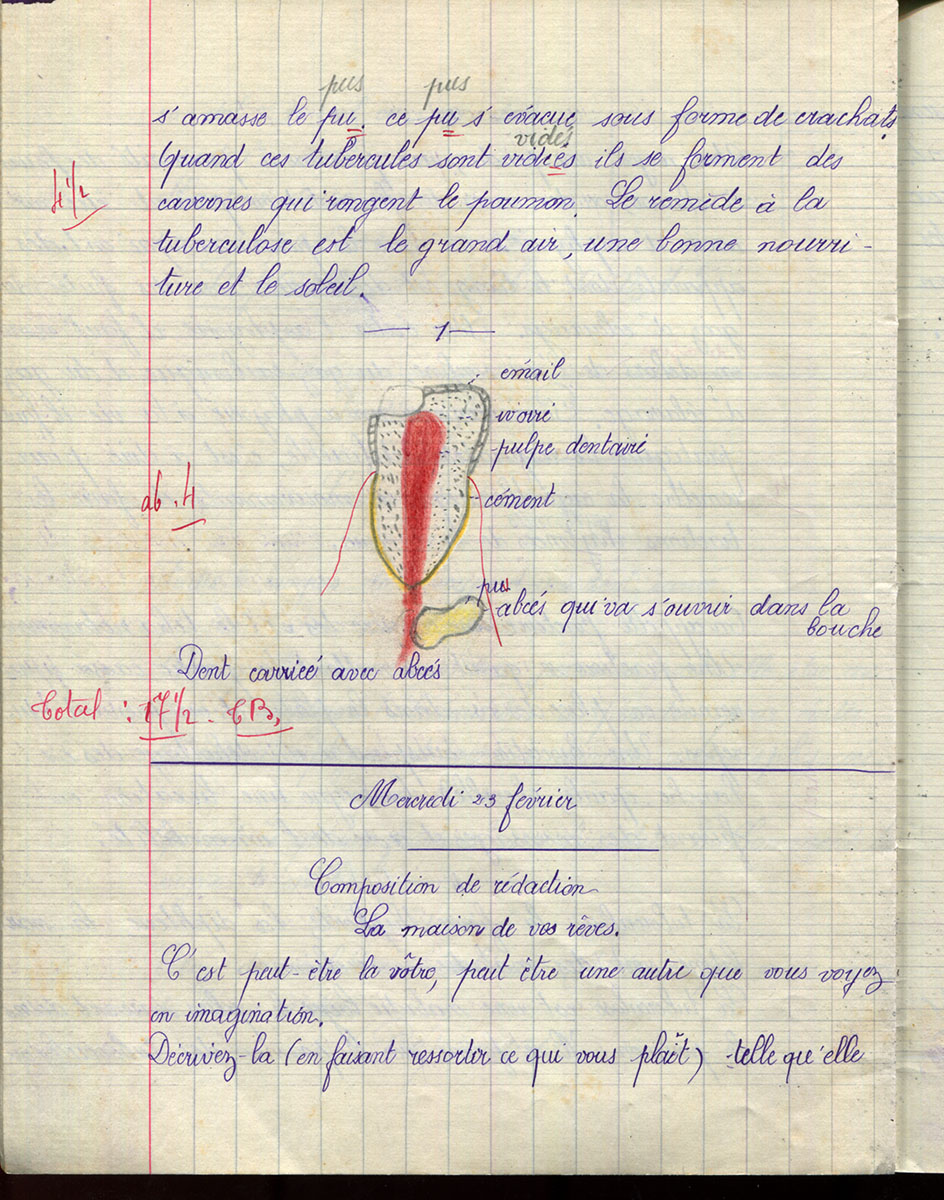 pus pus
s'amasse le pu. ce pu s'évacue sous forme de crachats
vidés
Quand ces tubercules sont vidiés ils se forment des
4 1/2
cavernes qui rongent le poumon. Le remède à la
tuberculose est le grand air, une bonne nourri-
ture et le soleil.
1
émail
ivoire
pulpe dentaire
ab. 4
cément
pus
abcés qui va s'ouvrir dans la
bouche
Dent carriée avec abcés
Total : 17 1/2 - TB.
Mercredi 23 février
Composition de rédaction
La maison de vos rêves.
C'est peut-être la vôtre, peut être une autre que vous voyez
en imagination.
Décrivez-la (en faisant ressortir ce qui vous plaît) telle qu'elle